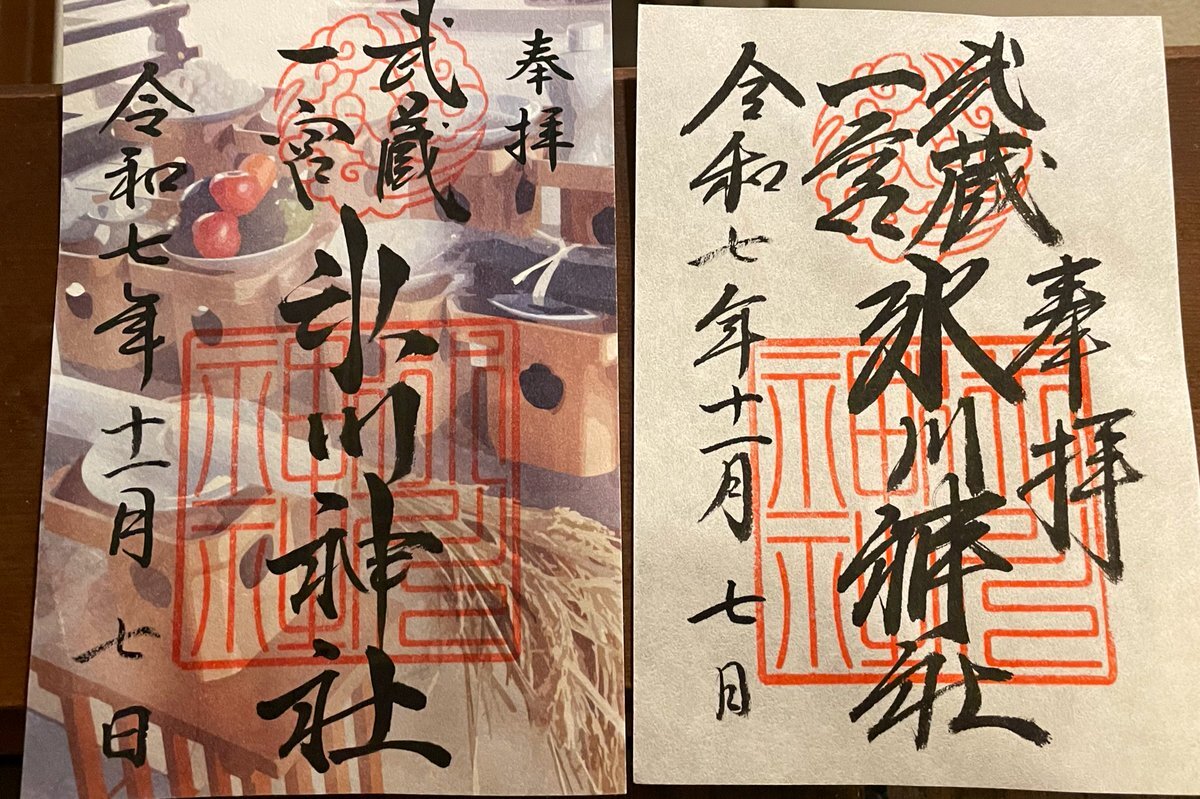 奉拝
武蔵
一宮
氷川神社
令和七年十一月七日
奉拝
武蔵
一宮
氷川神社
令和七年十一月七日